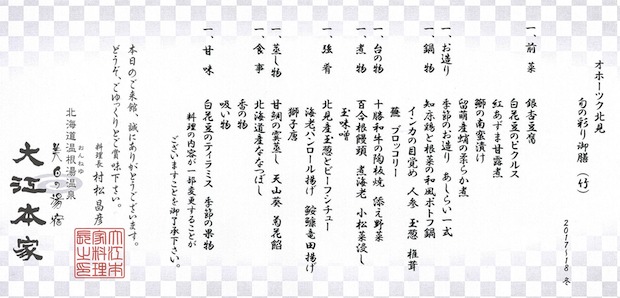 オホーツク北見
旬の彩り御膳 (竹)
2017〜18 冬
一、前菜
銀杏豆腐
白花豆のピクルス
紅あずま甘露煮
鰯の南蛮漬け
留萌産蛸の柔らか煮
一、お造り
季節のお造り あしらい一式
一、鍋物
知床鶏と根菜の和風ポトフ鍋
インカの目覚め 人参 玉葱 椎茸
蕪 ブロッコリー
一、台の物
十勝和牛の陶板焼 添え野菜
一、煮物
百合根饅頭 煮海老 小松菜浸し
玉味噌
一、強肴
北見産玉葱とビーフシチュー
海老パンロール揚げ 鮟鱇竜田揚げ
獅子唐
一、蒸し物
甘鯛の蕎麦蒸し 天山葵 菊花餡
一、食事
北海道産ななつぼし
香の物
吸い物
一、甘味
白花豆のティラミス 季節の果物
料理の内容が一部変更することが
ございますことを御了承下さい。
本日のご来館、誠にありがとうございます。
どうぞ、ごゆっくりとご賞味下さい。
料理長 村松昌彦
北海道温根湯温泉
おんねゆ
美白の湯宿
大江本家
大江本
家料理
長之印